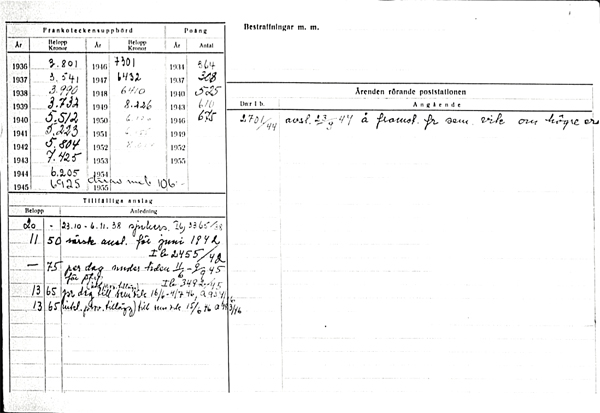 Frankoteckensuppbörd Poäng
År Belopp Kronor År Belopp Kronor År Antal
1936 3.801 1946 7301 1934 364
1937 3.541 1947 6432 1937 308
1938 3.990 1948 6410 1940 525
1939 3.732 1949 8.226 1943 610
1940 5.512 1950 1946 675
1941 5.223 1951 1949
1942 5.804 1952 1952
1943 7.425 1953 1955
1944 6.205 1954
1945 6925 1955 106:-
Tillfälliga anslag
Belopp Anledning
20 - 23.10 - 6.11.38 sjukers. Ib 3365/38
11 50 särsk. ansl. för juni 1942
Ib 2455/42
— 75 per dag under tiden 11/6 - 2/9 45
för
Ib 3492/45
13 65 pr dag till sem.vik 16/6 - 4/7 46,
13 65 (inkl. prov. tillägg) till sem.vik 15/6 46
Bestraffningar m. m.
Ärenden rörande poststationen
Dnr I b. Angående
2701/44 avsl. 23/9 44 å framst. fr sem. vik. om högre ers